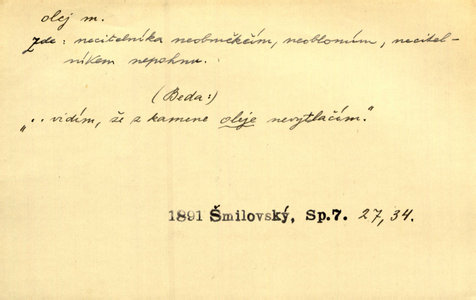 olej m.
zde: necitelníka neobměkčím, neoblomím, necitel-
níkem nepohnu.
(Beda:)
„.. vidím, že z kamene oleje nevytlačím."
1891 Šmilovský, Sp.7. 27, 34.